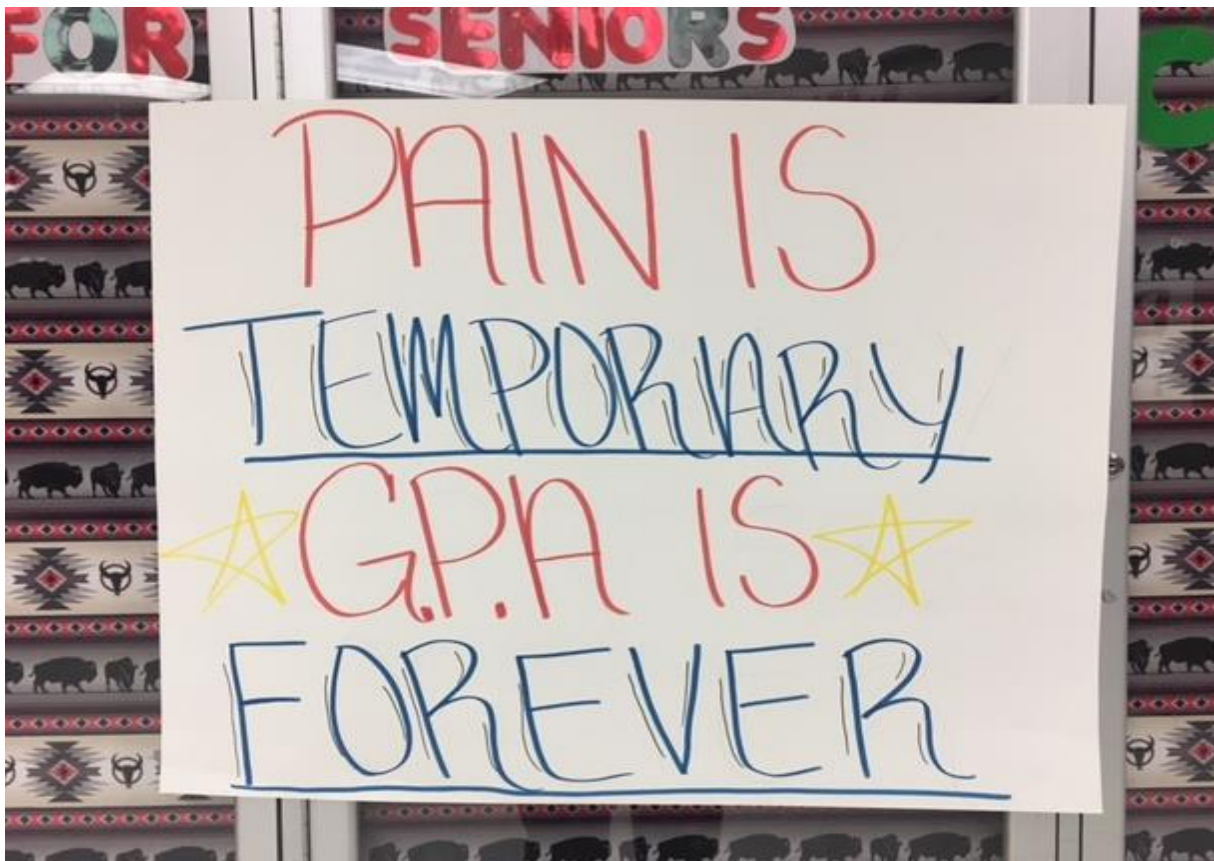 FOR SENIORS
C
PAIN IS
TEMPORARY
G.P.A IS
FOREVER